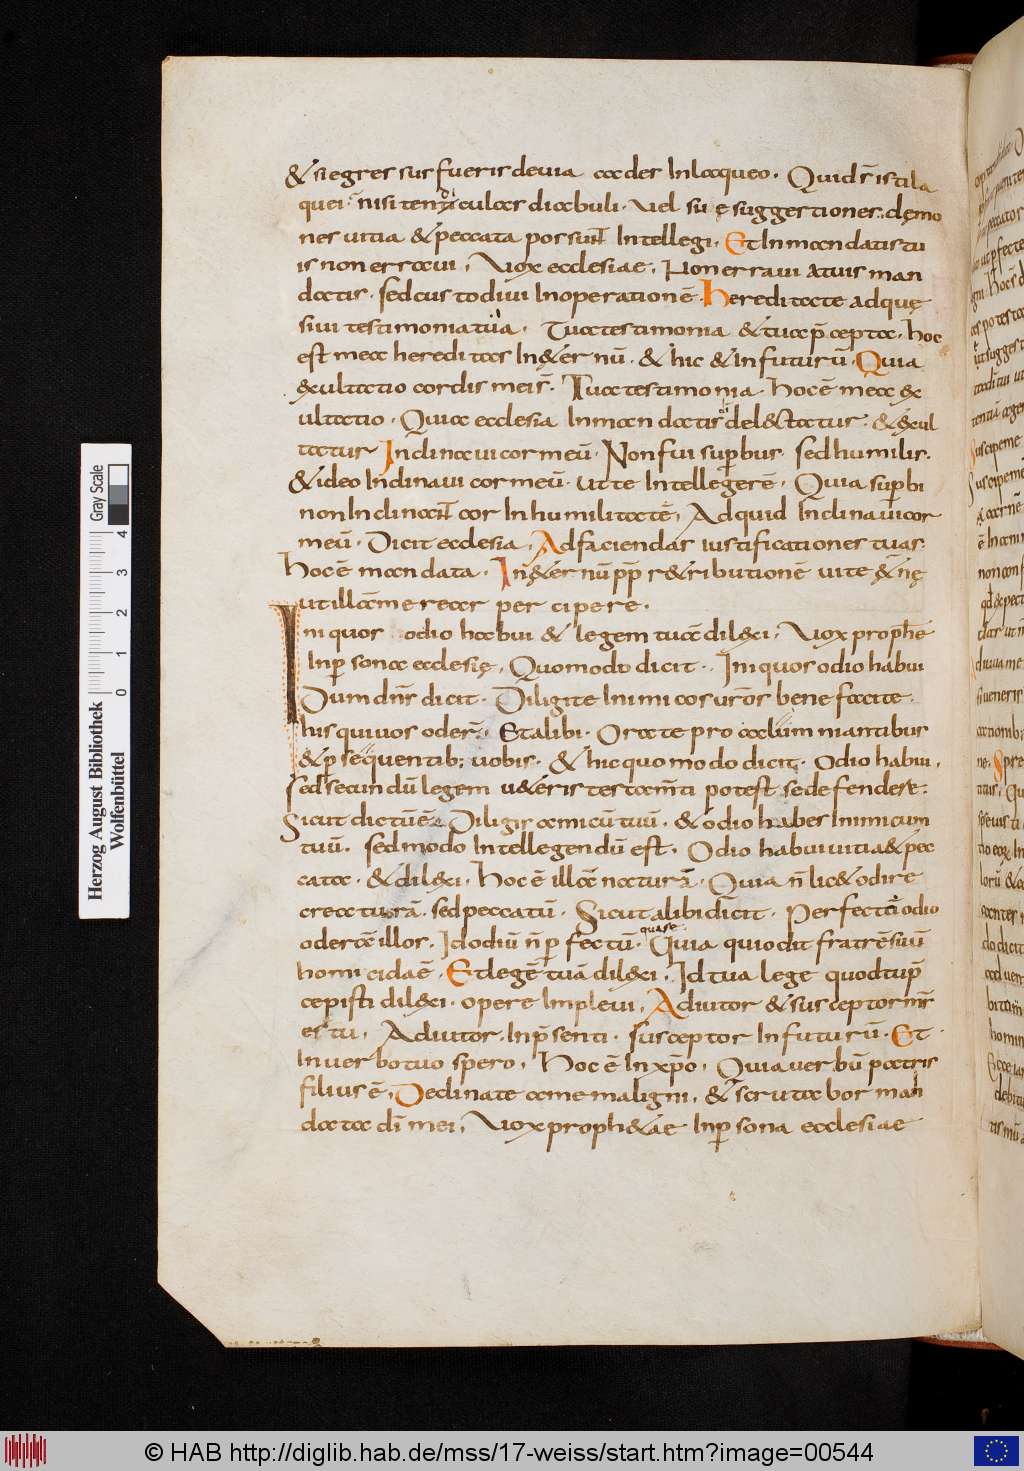 & si egressus fueris de uia cades In laqueo. Quid s̄ isti la
quei. n̄ isi tendiculas diabuli. uel suę suggestiones. dęmo
nes uitia & peccata possunt Intellegi. Et In mandatis tu
is non erraui. Uox ecclesiae. Non erraui a tuis man
datis. sed custodiui In operationē. Hereditate adquę
siui testimonia tua. Tua testimonia & tua p̄cepta. hoc
est mea hereditas In &ernū. & hic & In futurū. Quia
exultatio cordis mei s̄. Tua testimonia. hoc ē mea ex
ultatio. Quia ecclesia In mandatis d̄i del&tatur. & exul
tatur Inclinaui cor meū. Non fui sup̱bus. sed humilis.
& ideo Inclinaui cor meū. ut te Intellegerē. Quia sup̱bi
non Inclinant cor In humilitatē. Ad quid Inclinaui cor
meū. Dicit ecclesia. Ad faciendas iustificationes tuas.
Hoc ē mandata. In &ernū pp̱ r&ributionē uite &nę
ut illā merear percipere.
Iniquos odio habui & legem tuā dilexi. Uox proph&e
In p̱sona ecclesię. Quomodo dicit. Iniquos odio habui
Dum dn̄s dicit. Diligite Inimicos ur̄os bene facite
his qui uos oder̄. Et alibi. Orate pro calumniantibus
& p̱sequentib; uobis. & hic quomodo dicit. Odio habui.
sed secundū legem u&eris testam̄ti potest se defendere.
Sicut dictū ē. Diligis amicū tuū. & odio habes Inimicum
tuū. sed modo Intellegendū est. Odio habui uitia & pec
cata. & dilexi. Hoc ē illā naturā. Quia n̄ lic& odire
creaturā. sed peccatū. Sicut alibi dicit. Perfecto odio
oderā illos. Id odiū n̄ p̱fectū. quasi Quia qui odit fratrē suū
homicida ē. Et legē tuā dilexi. Id tua lege quod tu p̄
cepisti dilexi. opere Impleui. Adiutor & susceptor m̄s
es tu. Adiutor. In p̄senti. susceptor In futurū. Et
In uerbo tuo spero. Hoc ē In xp̄o. Quia uerbū patris
filius ē. Declinate a me maligni. & scrutabor man
data dī mei. Uox proph&ae In p̱sona ecclesiae
Gray Scale
0 1 2 3 4
Herzog August Bibliothek
Wolfenbüttel
© HAB http://diglib.hab.de/mss/17-weiss/start.htm?image=00544